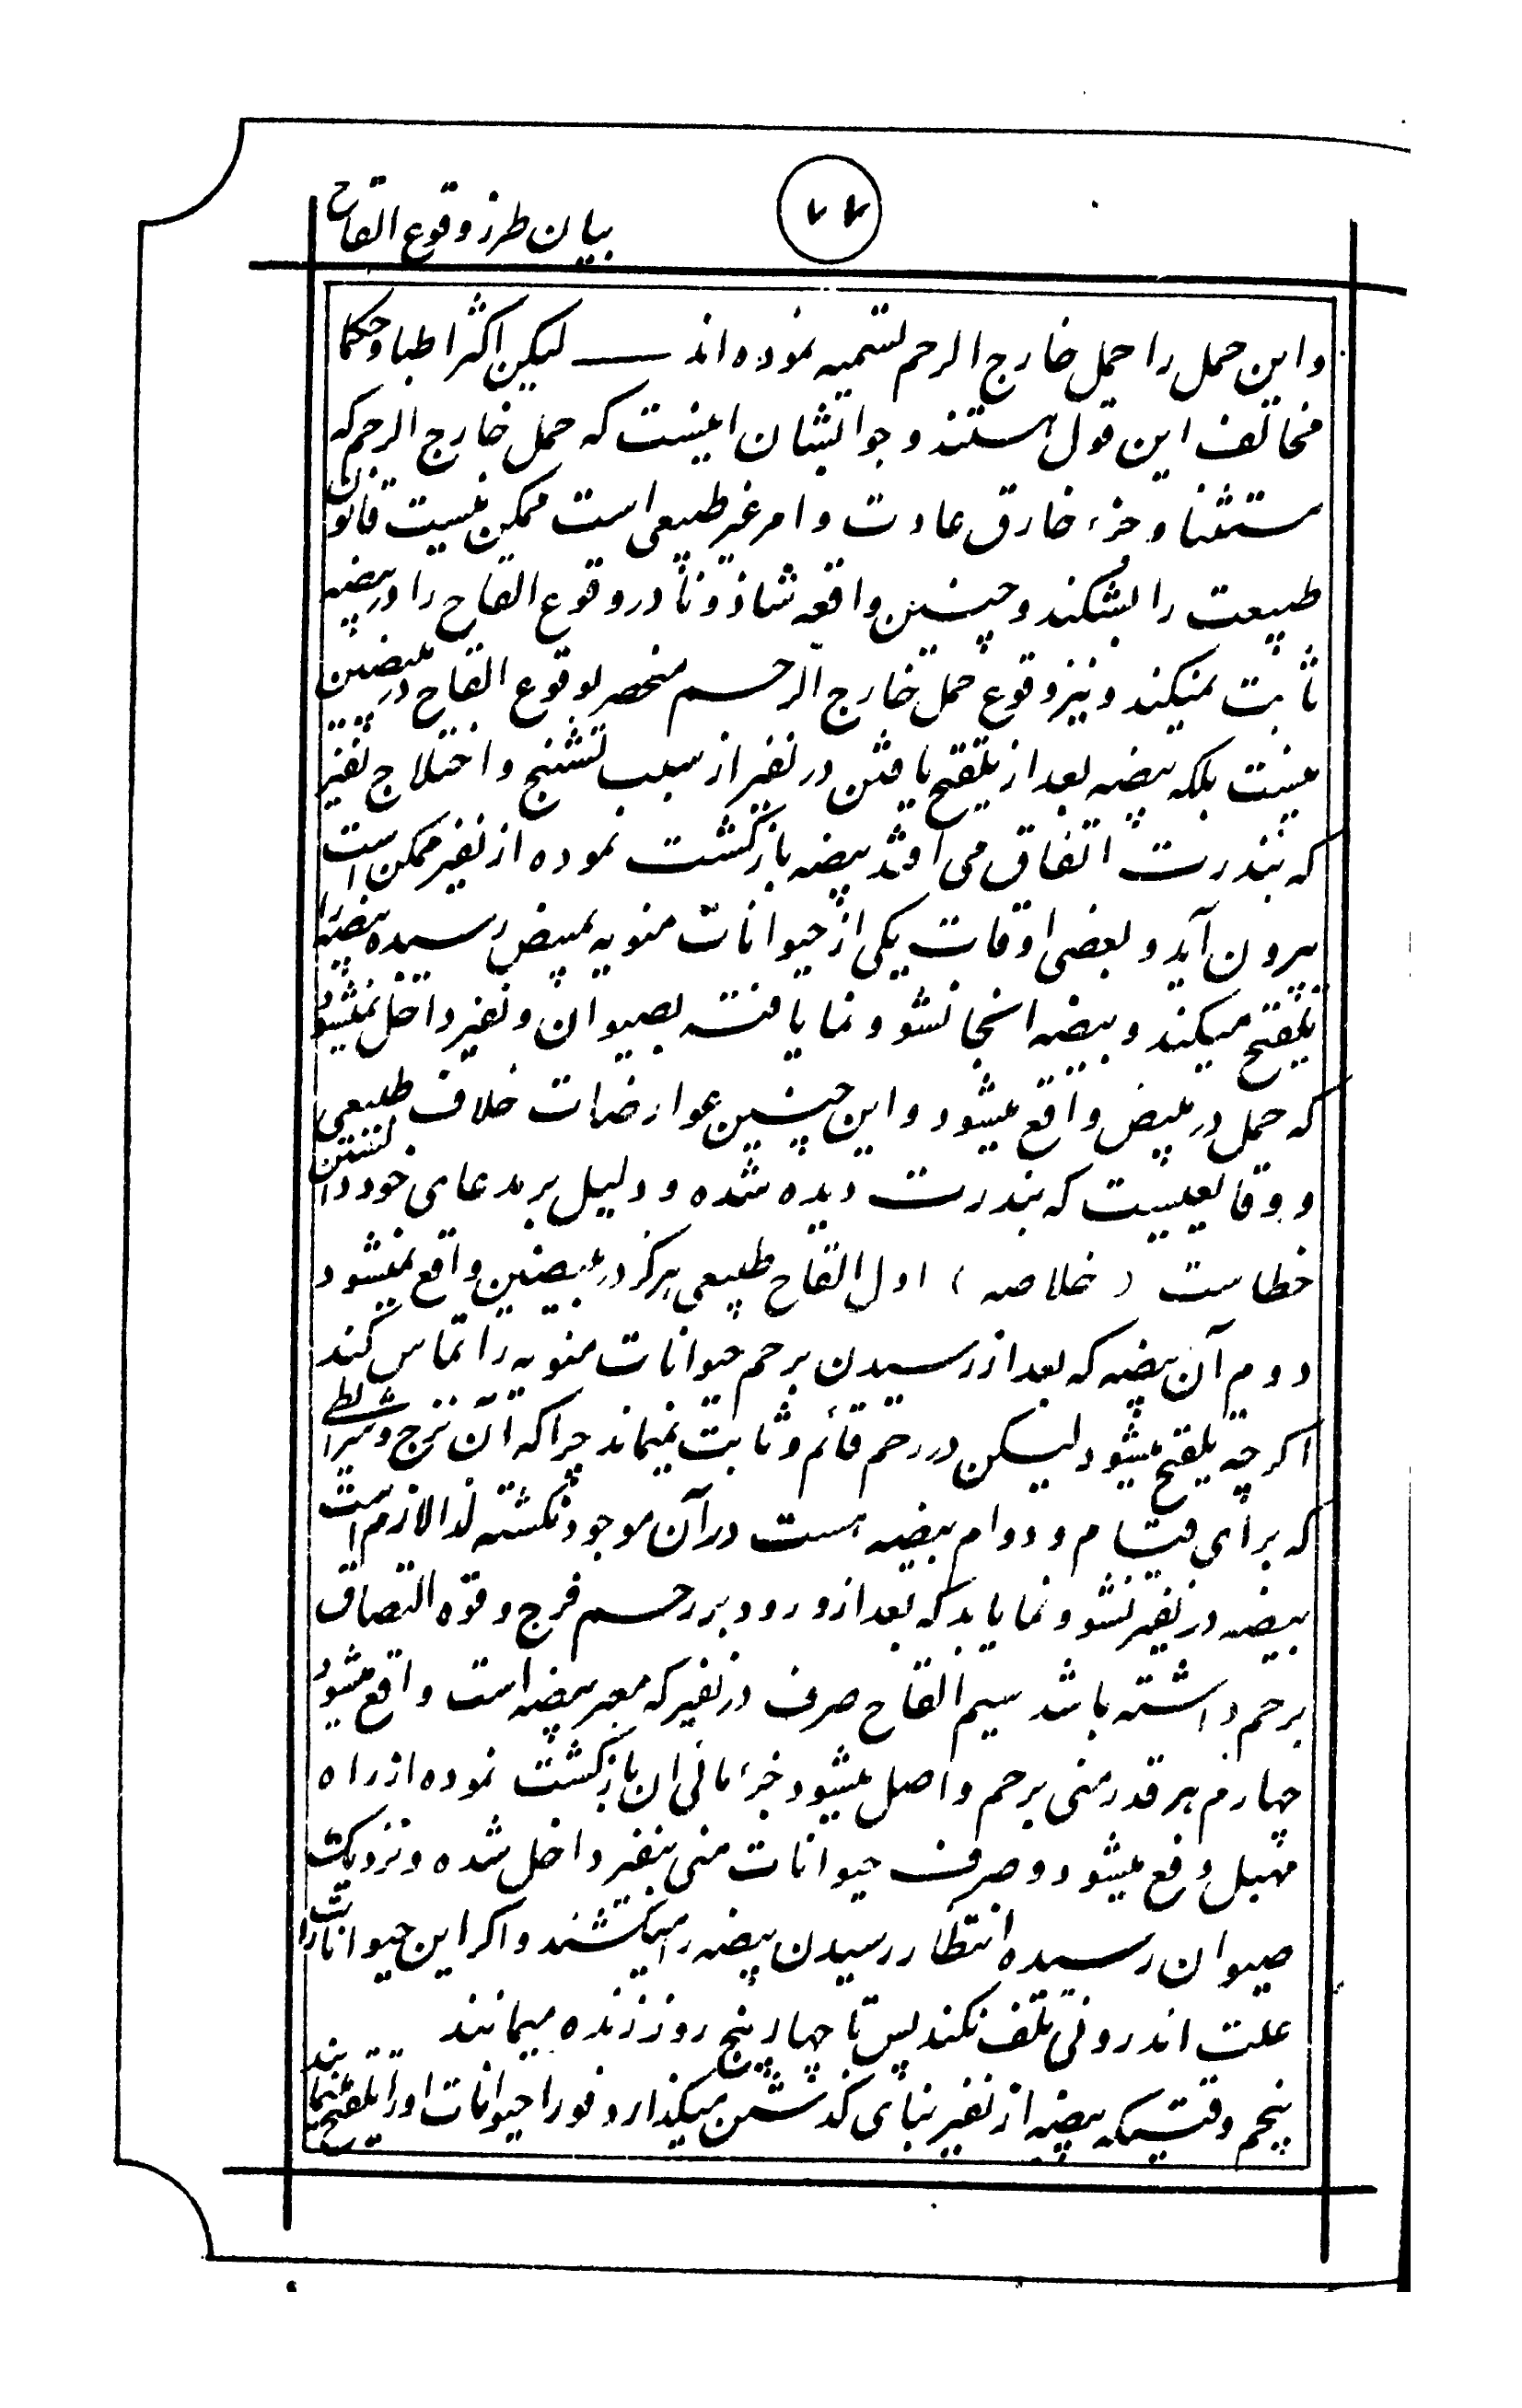 بیان طرز وقوع القاح
۷۷
و این حمل را حمل خارج الرحم تسمیه نموده اند — لیکن اکثر اطبا و حکما
مخالف این قول هستند و جوابشان اینست که حمل خارج الرحم که
مستثنا و جزء خارق عادت و امر غیر طبیعی است ممکن نیست قانون
طبیعت را بشکند و چنین واقعه شاذ و نادر وقوع القاح را در بیضه
ثابت نمیکند و نیز وقوع حمل خارج الرحم منحصر بوقوع القاح در مبیضین
نیست بلکه بیضه بعد از تلقیح یافتن در نفیر از سبب تشنج و اختلاج نفیر
که بندرت اتفاق می افتد بیضه بازگشت نموده از نفیر ممکن است
بیرون آید و بعضی اوقات یکی از حیوانات منویه بمبیض رسیده بیضه را
تلقیح میکند و بیضه انجا نشو و نما یافته بصیوان و نفیر داخل نمیشود
که حمل در مبیض واقع میشود و این چنین عوارضات خلاف طبیعی
و وقایعیست که بندرت دیده شده و دلیل بر مدعای خود دانستن
خطاست (خلاصه) اول القاح طبیعی هرگز در مبیضین واقع نمیشود
دوم آن بیضه که بعد از رسیدن برحم حیوانات منویه را تماس کند
اگرچه تلقیح میشود لیکن در رحم قائم و ثابت نمیماند چرا که آن نزج و شرائطی
که برای قیام و دوام بیضه هست در آن موجود نگشته لذا لازم است
بیضه در نفیر نشو و نما یابد که بعد از ورود برحم فرج و قوه التصاق
برحم داشته باشد سیم القاح صرف در نفیر که معبر بیضه است واقع میشود
چهارم هر قدر منی برحم واصل میشود جزء مائی ان بازگشت نموده از راه
مهبل دفع میشود و صرف حیوانات منی بنفیر داخل شده و نزدیک
صیوان رسیده انتظار رسیدن بیضه را میکشند و اکر این حیوانات را
علت اندرونی تلف نکند پس تا چهار پنج روز زنده میمانند
پنجم وقتیکه بیضه از نفیر بنای گذشتن میگذارد فورا حیوانات اورا تلقیح مینمایند